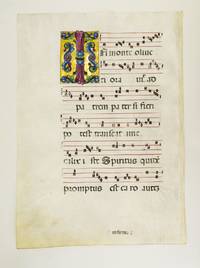 In monte olive
ti ora vit ad
pa trem pa ter si fieri
po test transeat a me
calix i ste Spiritus quidē
promptus est ca ro autē